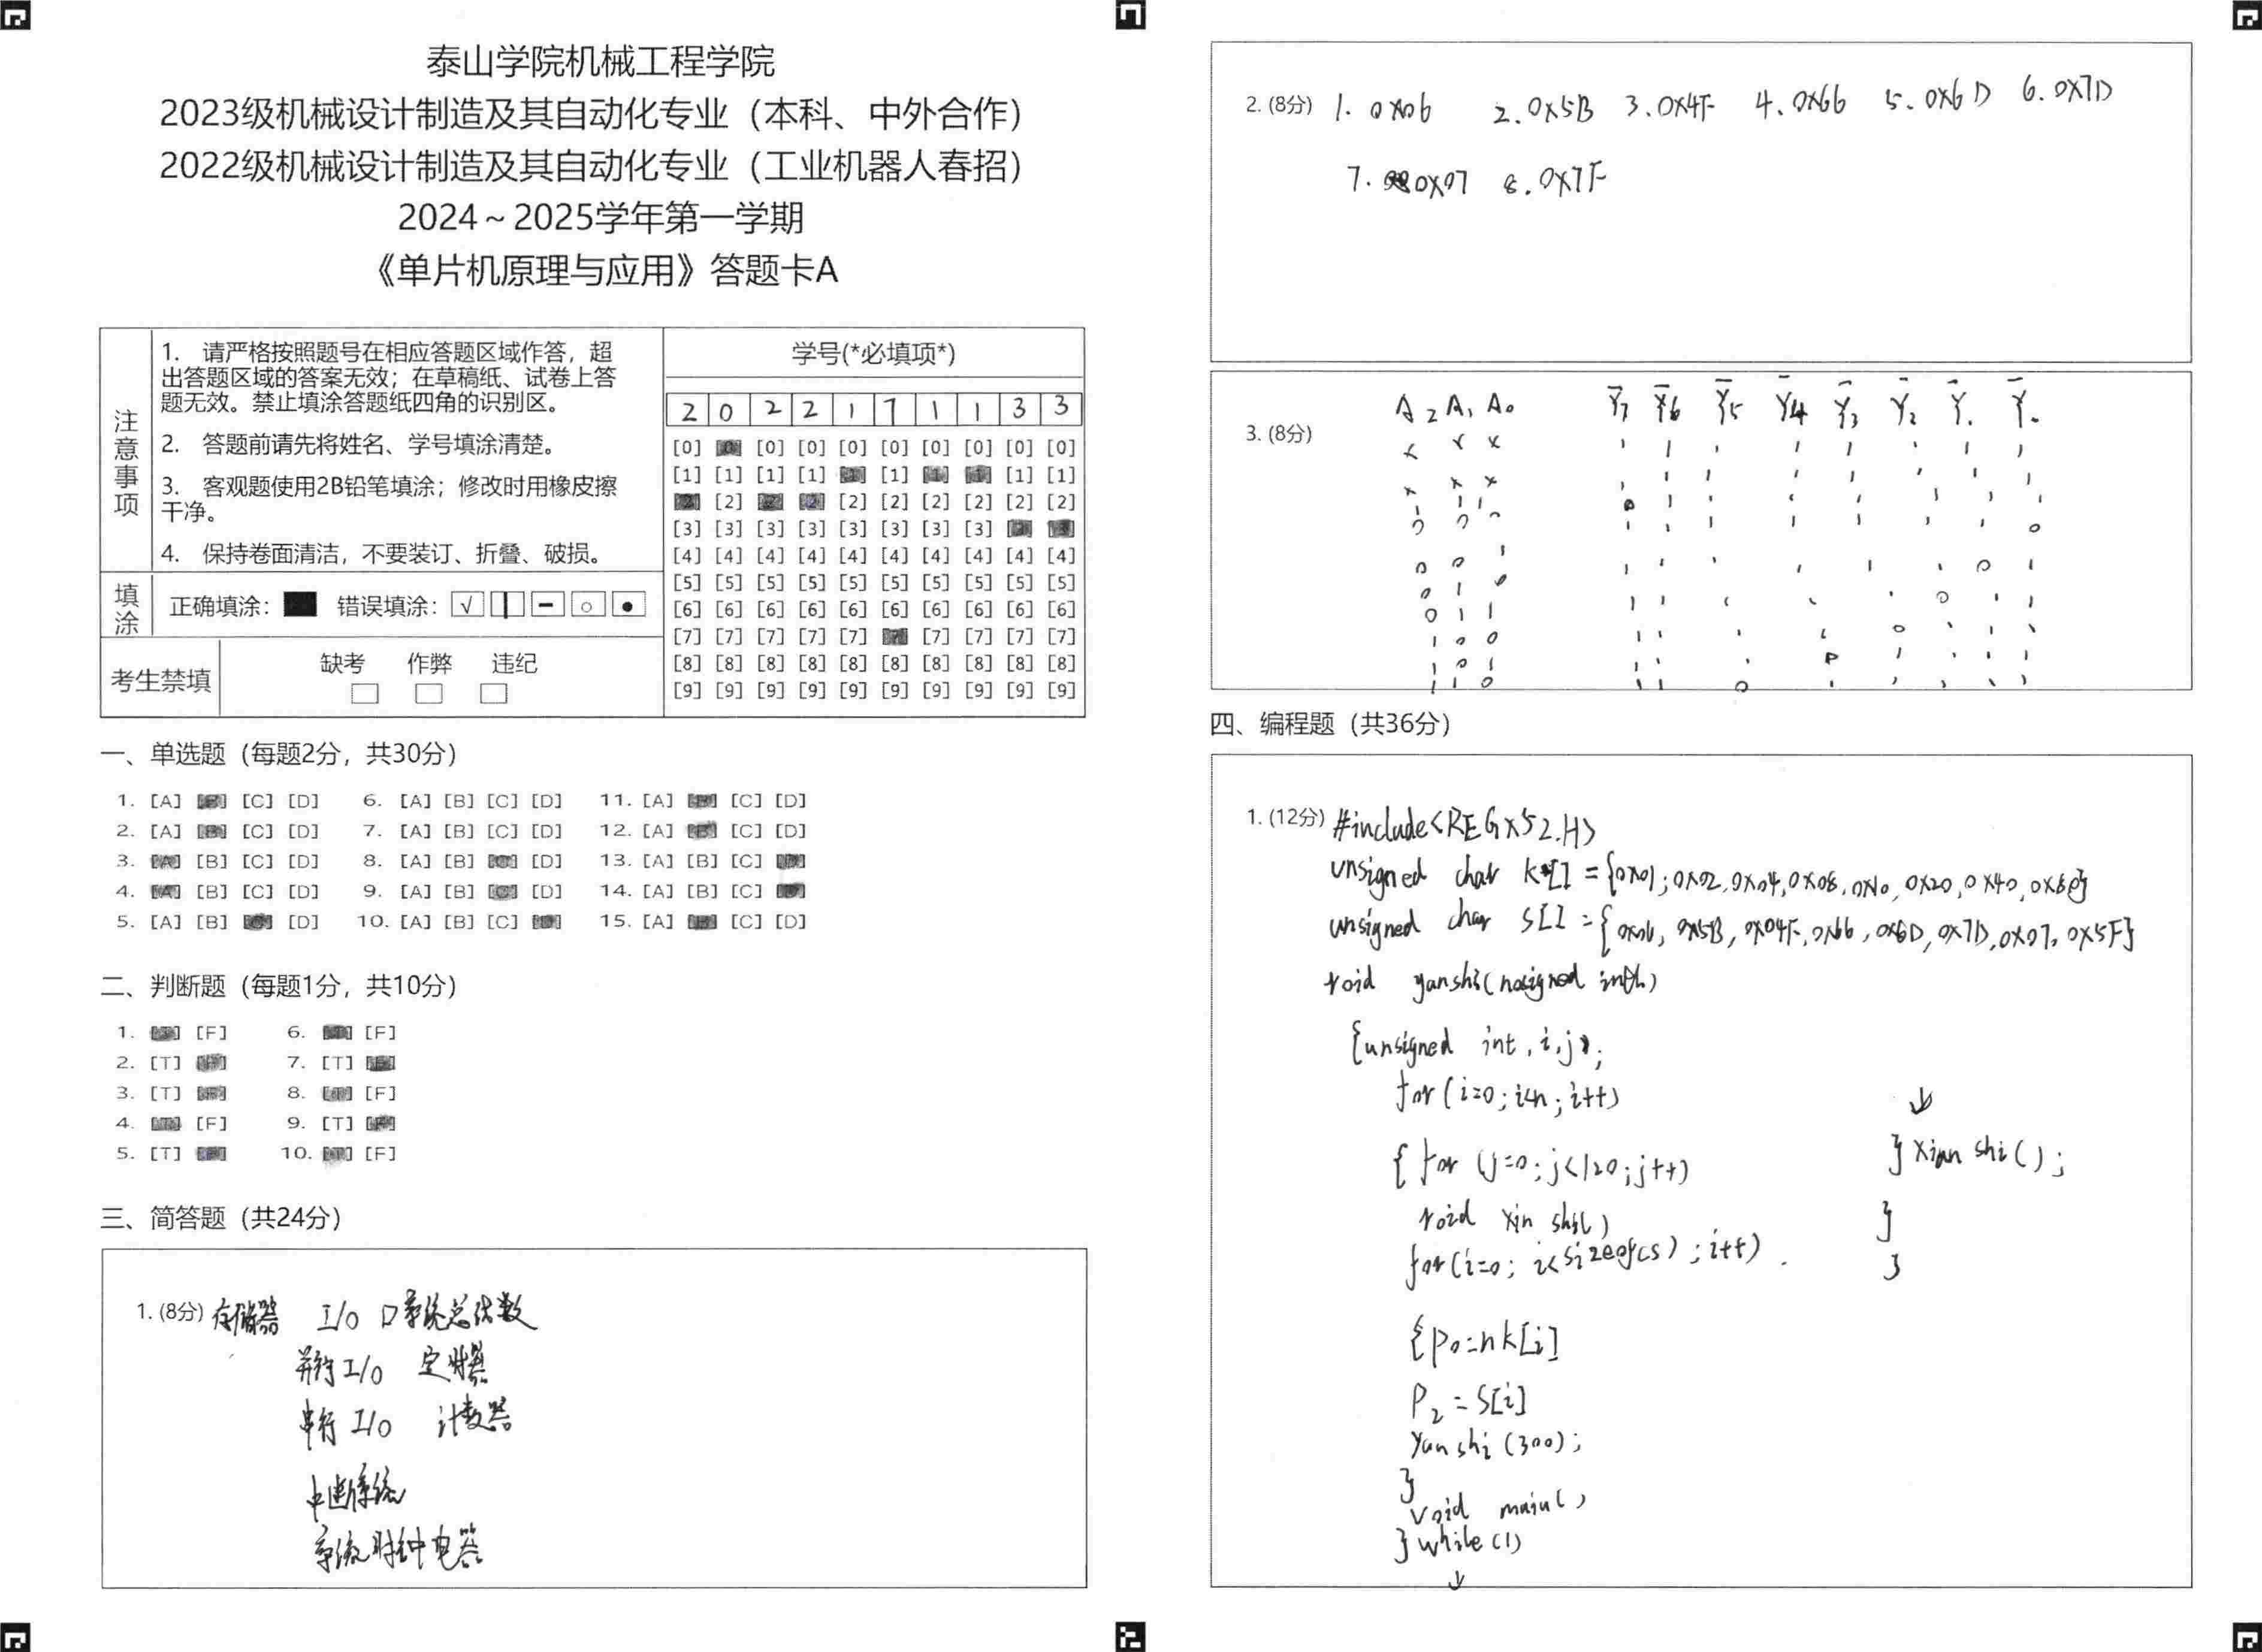 泰山学院机械工程学院
2023级机械设计制造及其自动化专业（本科、中外合作）
2022级机械设计制造及其自动化专业（工业机器人春招）
2024～2025学年第一学期
《单片机原理与应用》答题卡A
注意事项
1. 请严格按照题号在相应答题区域作答，超
出答题区域的答案无效；在草稿纸、试卷上答
题无效。禁止填涂答题纸四角的识别区。
2. 答题前请先将姓名、学号填涂清楚。
3. 客观题使用2B铅笔填涂；修改时用橡皮擦
干净。
4. 保持卷面清洁，不要装订、折叠、破损。
填涂
正确填涂： 错误填涂：
考生禁填
缺考 作弊 违纪
学号(*必填项*)
2 0 2 2 1 7 1 1 3 3
[0] [0] [0] [0] [0] [0] [0] [0] [0]
[1] [1] [1] [1] [1] [1] [1]
[2] [2] [2] [2] [2] [2] [2]
[3] [3] [3] [3] [3] [3] [3] [3]
[4] [4] [4] [4] [4] [4] [4] [4] [4] [4]
[5] [5] [5] [5] [5] [5] [5] [5] [5] [5]
[6] [6] [6] [6] [6] [6] [6] [6] [6] [6]
[7] [7] [7] [7] [7] [7] [7] [7] [7]
[8] [8] [8] [8] [8] [8] [8] [8] [8] [8]
[9] [9] [9] [9] [9] [9] [9] [9] [9] [9]
一、单选题（每题2分，共30分）
1. [A] [C] [D] 6. [A] [B] [C] [D] 11. [A] [C] [D]
2. [A] [C] [D] 7. [A] [B] [C] [D] 12. [A] [C] [D]
3. [B] [C] [D] 8. [A] [B] [D] 13. [A] [B] [C]
4. [B] [C] [D] 9. [A] [B] [D] 14. [A] [B] [C]
5. [A] [B] [D] 10. [A] [B] [C] 15. [A] [C] [D]
二、判断题（每题1分，共10分）
1. [F] 6. [F]
2. [T] 7. [T]
3. [T] 8. [F]
4. [F] 9. [T]
5. [T] 10. [F]
三、简答题（共24分）
1. (8分) 存储器 I/O 口系统总线数
并行I/O 定时器
串行 I/O 计数器
中断系统
系统时钟电器
2. (8分) 1. 0x06 2. 0X5B 3. 0X4F 4. 0X66 5. 0X6D 6. 0X7D
7. 0X07 8. 0X7F
3. (8分)
A2 A1 A0 Y7 Y6 Y5 Y4 Y3 Y2 Y1 Y0
四、编程题（共36分）
1. (12分) #include<REGX52.H>
unsigned char k[] = {0x01; 0x02, 0x04, 0x08, 0x10, 0x20, 0x40, 0x80}
unsigned char s[] = {0x06, 0x5B, 0x04F, 0x66, 0x6D, 0x7D, 0x07, 0X5F}
void yanshi(
{unsigned int, i,j;
for(i=0; i<n; i++)
{ for (j=0; j<120; j++)
void xin shi()
for(i=0; i<sizeof(s); i++)
{P0=nk[i]
P2 = S[i]
Yanshi (300);
}
void main()
} while (1)
↓
↓
} xian shi();
}
}